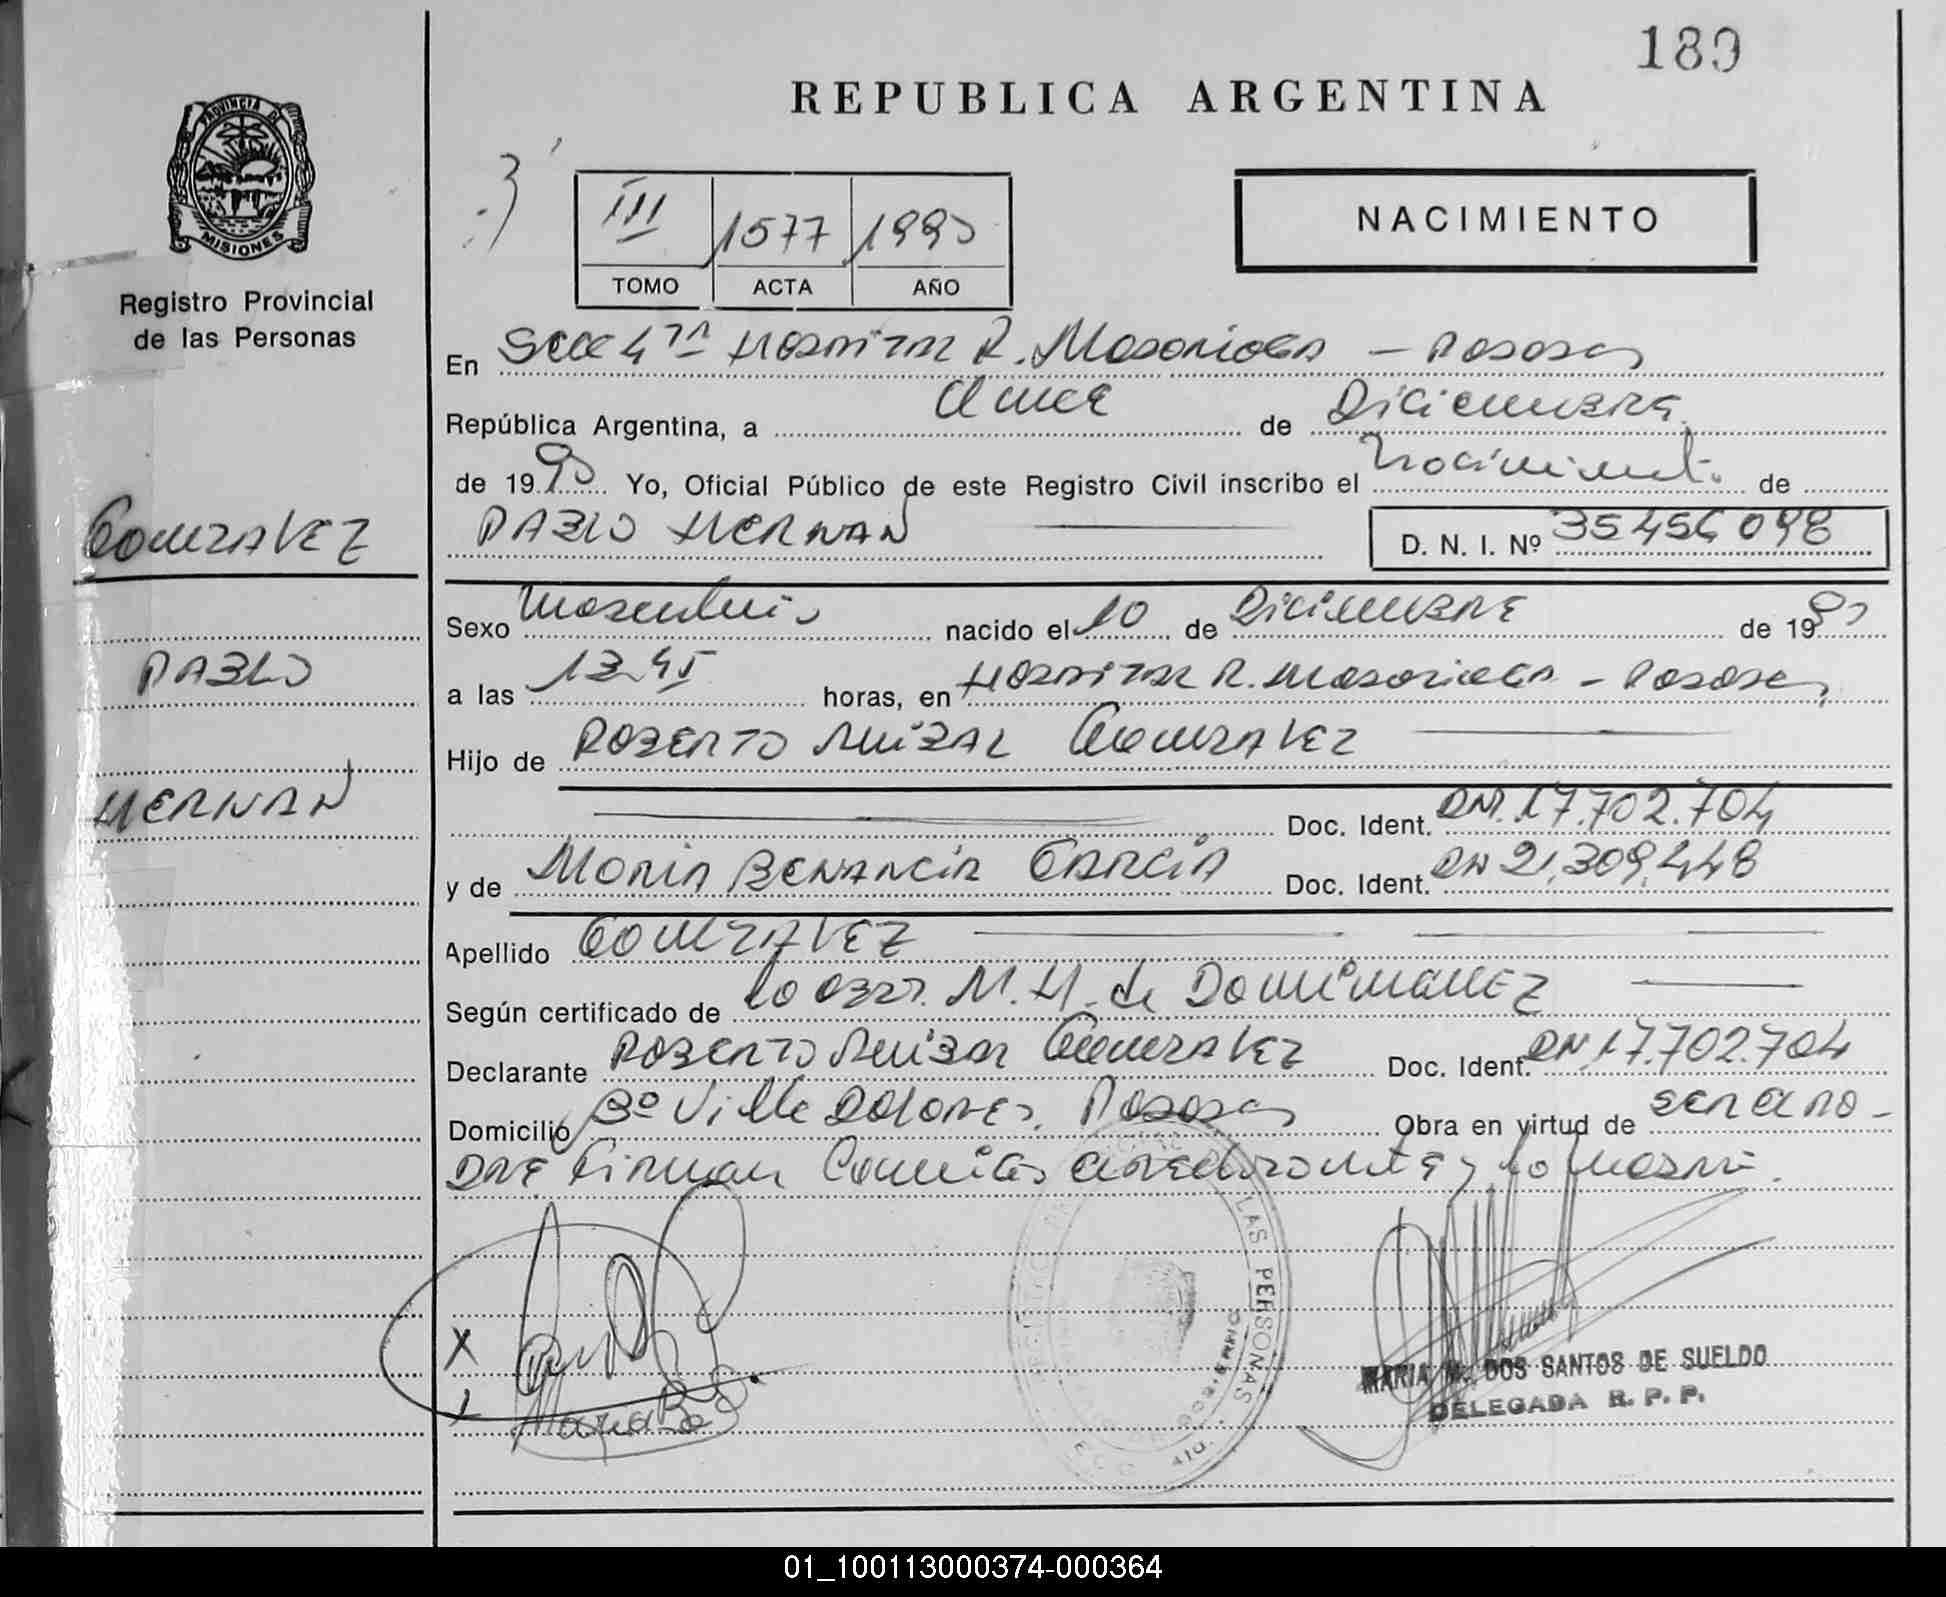 189
REPUBLICA ARGENTINA
PROVINCIA DE
MISIONES
Registro Provincial
de las Personas
III 1577 1990
TOMO ACTA AÑO
NACIMIENTO
En Secc 4ta Hospital R. Madariaga - Posadas
República Argentina, a Once de Diciembre
de 1990 Yo, Oficial Público de este Registro Civil inscribo el Nacimiento de
PABLO HERNAN D. N. I. Nº 35456098
GONZALEZ
PABLO
HERNAN
Sexo Masculino nacido el 10 de Diciembre de 1990
a las 13.45 horas, en Hospital R. Madariaga - Posadas
Hijo de ROBERTO ANIBAL GONZALEZ
Doc. Ident. DNI. 17.702.704
y de MARIA BENANCIA GARCIA Doc. Ident. DNI 21.309.448
Apellido GONZALEZ
Según certificado de la Obst. M. H. de DOMINGUEZ
Declarante ROBERTO ANIBAL GONZALEZ Doc. Ident. DNI 17.702.704
Domicilio Bº Villa DOLORES, Posadas Obra en virtud de ser el pa-
dre Firman Conmigo el declarante y la madre.
X
LAS PERSONAS
MARIA M. DOS SANTOS DE SUELDO
DELEGADA R. P. P.
01_100113000374-000364